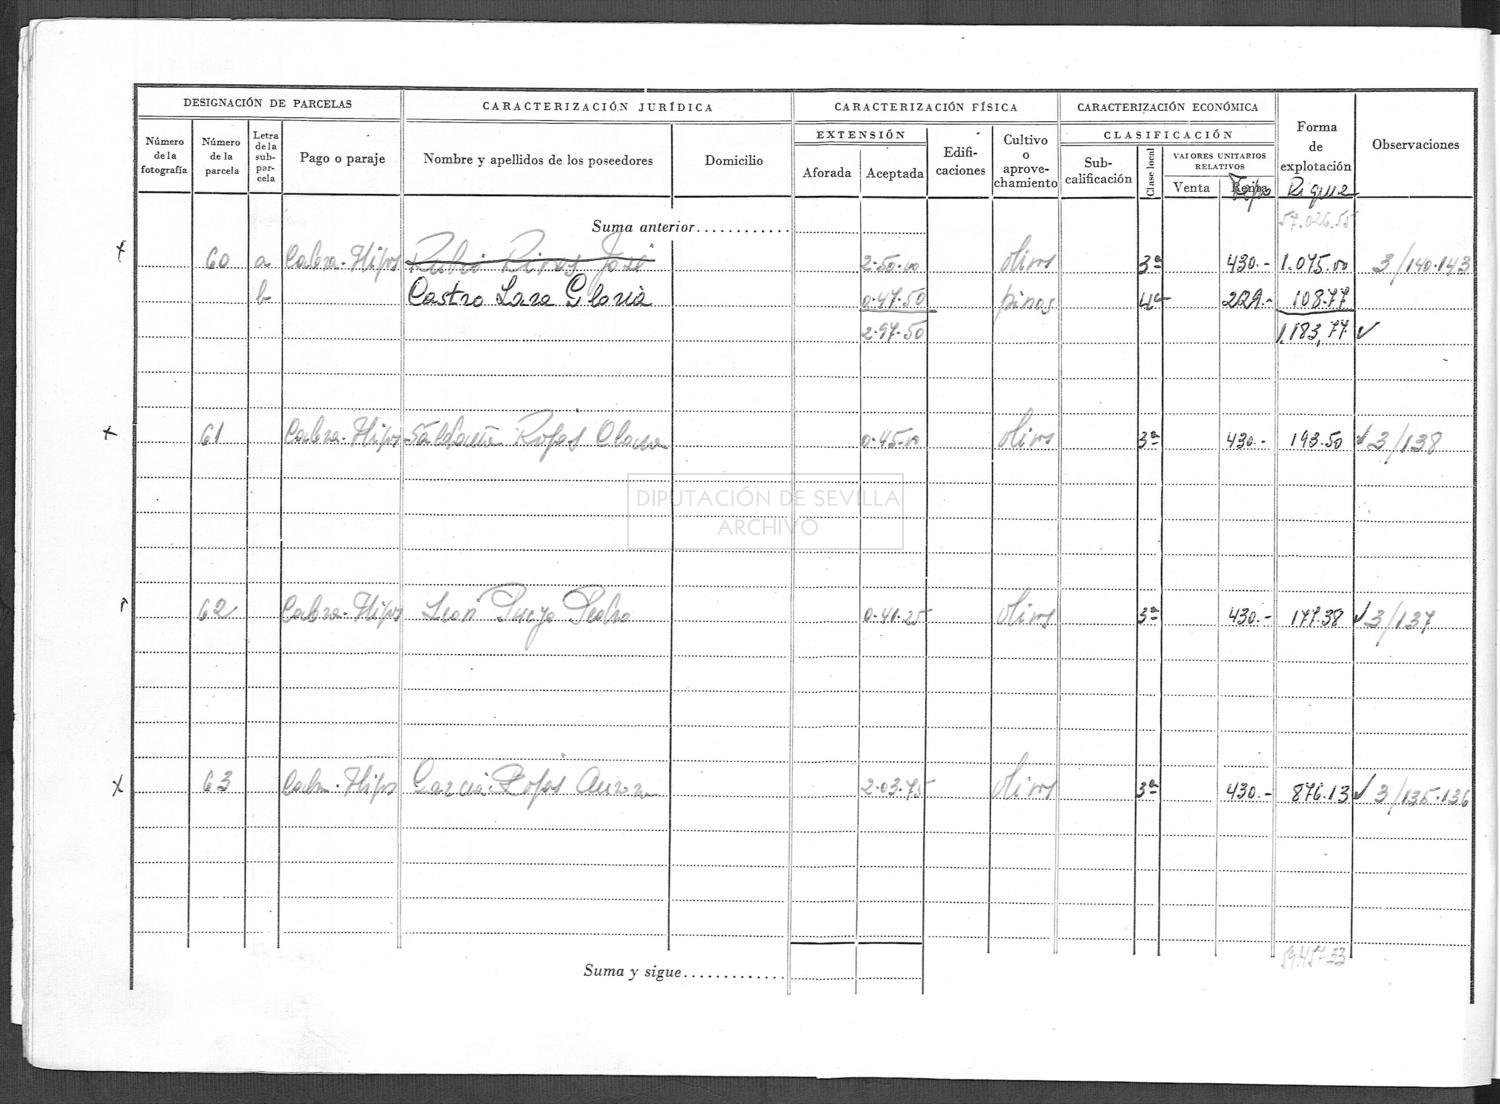 DESIGNACIÓN DE PARCELAS CARACTERIZACIÓN JURÍDICA CARACTERIZACIÓN FÍSICA CARACTERIZACIÓN ECONÓMICA Forma de explotación Observaciones
Número de la fotografía Número de la parcela Letra de la sub-par-cela Pago o paraje Nombre y apellidos de los poseedores Domicilio EXTENSIÓN Aforada Aceptada Edifi-caciones Cultivo o aprove-chamiento CLASIFICACIÓN Sub-calificación Clase local VALORES UNITARIOS RELATIVOS Venta Renta
Tipo Riqueza
Suma anterior 57.026.55
60 a Cabeza-Hipos Rubio Rivas José 2-50-00 olivos 3ª 430.- 1.075.00 3/140-143
b Castro Lara Gloria 0-47-50 pinos 4ª 229.- 108.77
2-97-50 1.183,77
61 Cabeza-Hipos Saldaña Rojas 0-45-00 olivos 3ª 430.- 193.50 3/138
62 Cabeza-Hipos León Pedro 0-41-25 olivos 3ª 430.- 177.38 3/137
63 Hipos García Rojas Aurora 2-03-75 olivos 3ª 430.- 876.13 3/135-136
Suma y sigue 59.457.33
DIPUTACIÓN DE SEVILLA
ARCHIVO